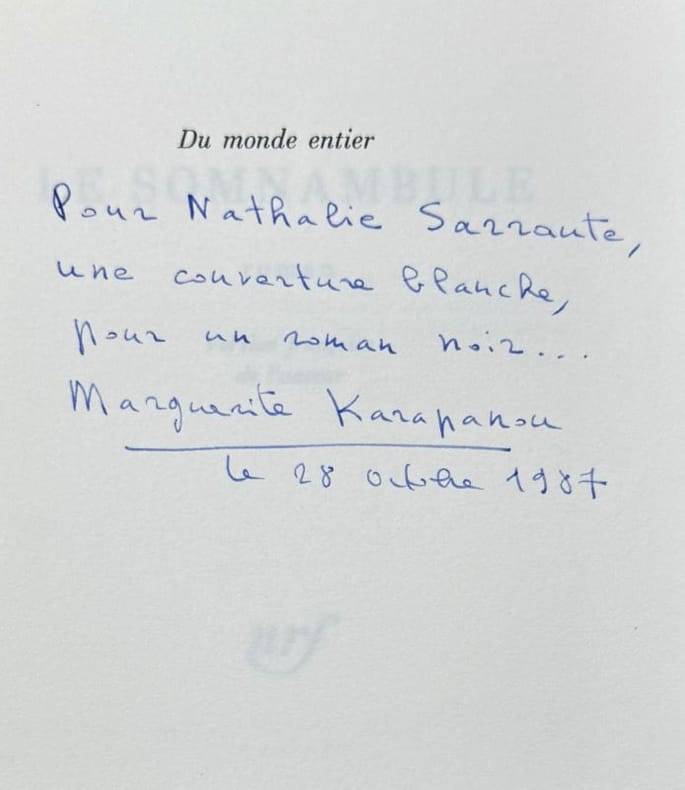 Du monde entier
LE SOMNAMBULE
Pour Nathalie Sarraute,
une couverture blanche,
pour un roman noir...
Marguerite Karapanou
le 28 octobre 1987
nrf